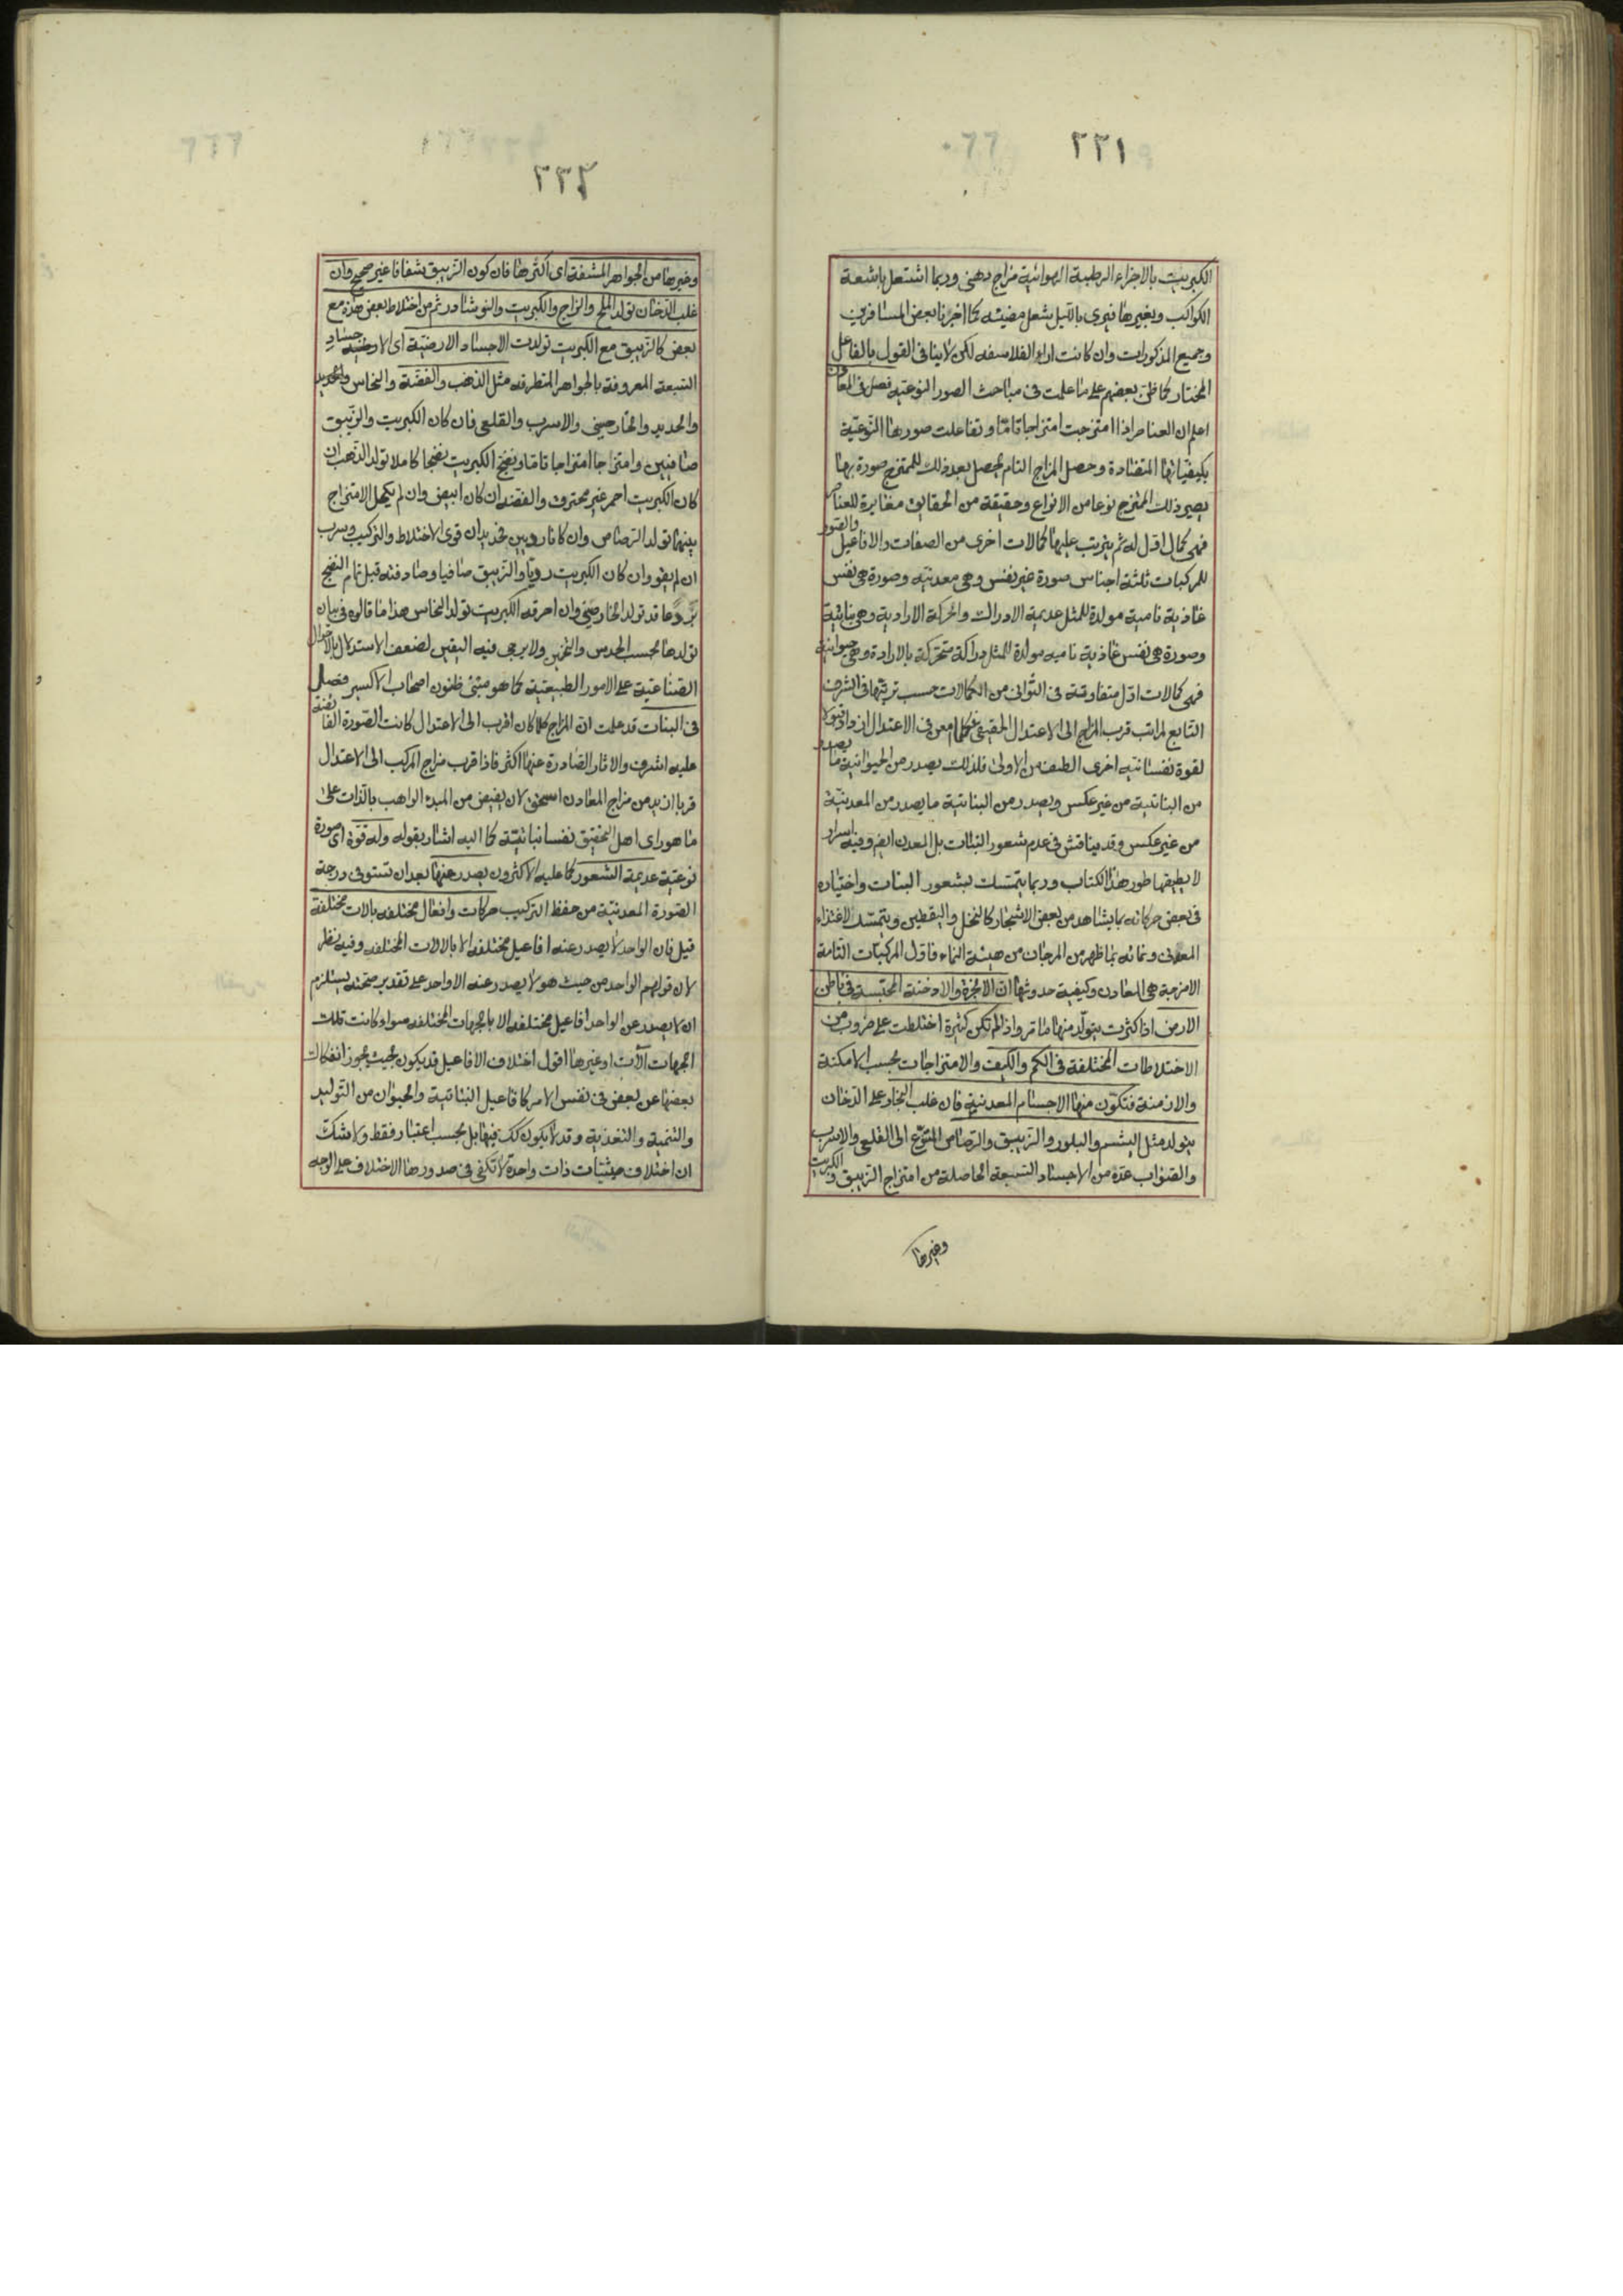 ٢٢١
الكبريت بالاجزاء الرطبة الهوائية مزاج دهنى وربما اشتعل باشعة
الكواكب وبغيرها فيرى بالليل شعل مضيئة كما اخبرنا بعض المسافرين
وجميع المذكورات وان كانت اراء الفلاسفه لكن لا ينافى القول بالفاعل
المختار كما ظن بعضهم على ما علمت فى مباحث الصور النوعية فصل فى المعادن
اعلم ان العناصر اذا امتزجت امتزاجا تاما وتفاعلت صورها النوعية
بكيفياتها المتضادة وحصل المزاج التام يحصل بعد ذلك للممتزج صورة بها
يصير ذلك الممتزج نوعا من الانواع وحقيقة من الحقايق مغايرة للعناصر
فهى كمال اول له ثم يترتب عليها كمالات اخرى من الصفات والافاعيل والصور
للمركبات ثلثة اجناس صورة غير نفس وهى معدنية وصورة هى نفس
غاذية نامية مولدة للمثل عديمة الادراك والحركة الارادية وهى نباتية
وصورة هى نفس غاذية ناميه مولدة للمثل دراكة متحركة بالارادة وهى حيوانية
فهى كمالات اول متفاوتة فى الثوانى من الكمالات حسب ترتبها فى الشرف
التابع لمراتب قرب المزاج الى الاعتدال الحقيقى فكلما امعن فى الاعتدال ازداد قبولا
لقوة نفسانيه اخرى الطف من الاولى فلذلك يصدر من الحيوانية ما يصدر
من النباتية من غير عكس ويصدر من النباتية ما يصدر من المعدنية
من غير عكس وقد يناقش فى عدم شعور النبات بل المعدن ايضا وفيه اسرار
لا يطيقها طور هذا الكتاب وربما يتمسك بشعور النبات واختياره
فى بعض حركاته بما يشاهد من بعض الاشجار كالنخل واليقطين ويتمسك لاغتذاء
المعدنى ونمائه بما ظهر من المرجان من هيئة النماء فاول المركبات التامة
الامزجة هى المعادن وكيفية حدوثها ان الابخرة والادخنة المحتبسة فى باطن
الارض اذا كثرت يتولد منها ما مر واذا لم تكن كثيرة اختلطت على ضروب من
الاختلاطات المختلفة فى الكم والكيف والامتزاجات بحسب الامكنة
والازمنة فتكون منها الاجسام المعدنية فان غلب البخار على الدخان
يتولد مثل اليشم والبلور والزيبق والرصاص المتنوع الى القلعى والاسرب
والصواب عده من الاجساد السبعة الحاصلة من امتزاج الزيبق والكبريت
وغيرها
٢٢٢
وغيرها من الجواهر المشفة اى اكثرها فان كون الزيبق شفافا غير صحيح وان
غلب الدخان تولد الملح والزاج والكبريت والنوشادر ثم من اختلاط بعض هذه مع
بعض كالزيبق مع الكبريت تولدت الاجساد الارضية اى الاجساد
السبعة المعروفة بالجواهر المتطرقه مثل الذهب والفضة والنحاس والحديد
والحديد والخارصينى والاسرب والقلعى فان كان الكبريت والزيبق
صافيين وامتزاجا امتزاجا تاما ونضج الكبريت نضجا كاملا تولد الذهب ان
كان الكبريت احمر غير محترق والفضه ان كان ابيض وان لم يكمل الامتزاج
بينهما تولد الرصاص وان كانا رديين فحديد ان قوى الاختلاط والتركيب وسرب
ان لم يقو وان كان الكبريت رديا والزيبق صافيا وصادفه قبل تمام النضج
بردٌ عاقد تولد الخارصينى وان احرقه الكبريت تولد النحاس هذا ما قالوه فى بيان
تولدها بحسب الحدس والتخمين ولا يرجى فيه اليقين لضعف الاستدلال بالاحوال
الصناعية على الامور الطبيعية كما هو مبنى ظنون اصحاب الاكسير فصل
فى النبات قد علمت ان المزاج كلما كان اقرب الى الاعتدال كانت الصورة الفائضة
عليه اشرف والاثار الصادرة عنها اكثر فاذا قرب مزاج المركب الى الاعتدال
قربا ازيد من مزاج المعادن استحق لان يفيض من المبدء الواهب بالذات على
ما هو راى اهل التحقيق نفسا نباتية كما اليه اشار بقوله وله قوة اى صورة
نوعية عديمة الشعور كما عليه الاكثرون يصدر عنها بعد ان تستوفى درجة
الصورة المعدنية من حفظ التركيب حركات وافعال مختلفه بالات مختلفة
قيل فان الواحد لا يصدر عنه افاعيل مختلفه الا بالالات المختلفه وفيه نظر
لان قولهم الواحد من حيث هو لا يصدر عنه الا واحد على تقدير صحته يستلزم
ان لا يصدر عن الواحد افاعيل مختلفه الا بالجهات المختلفه سواء كانت تلك
الجهات الآت او غيرها اقول اختلاف الافاعيل قد يكون بحيث يجوز انفكاك
بعضها عن بعض فى نفس الامر كافاعيل النباتية والحيوان من التوليد
والتنمية والتغذية وقد لا يكون كك فيها بل بحسب اعتبار فقط ولا شك
ان اختلاف حيثيات ذات واحدة لا تكفى فى صدور هذا الاختلاف على الوجه